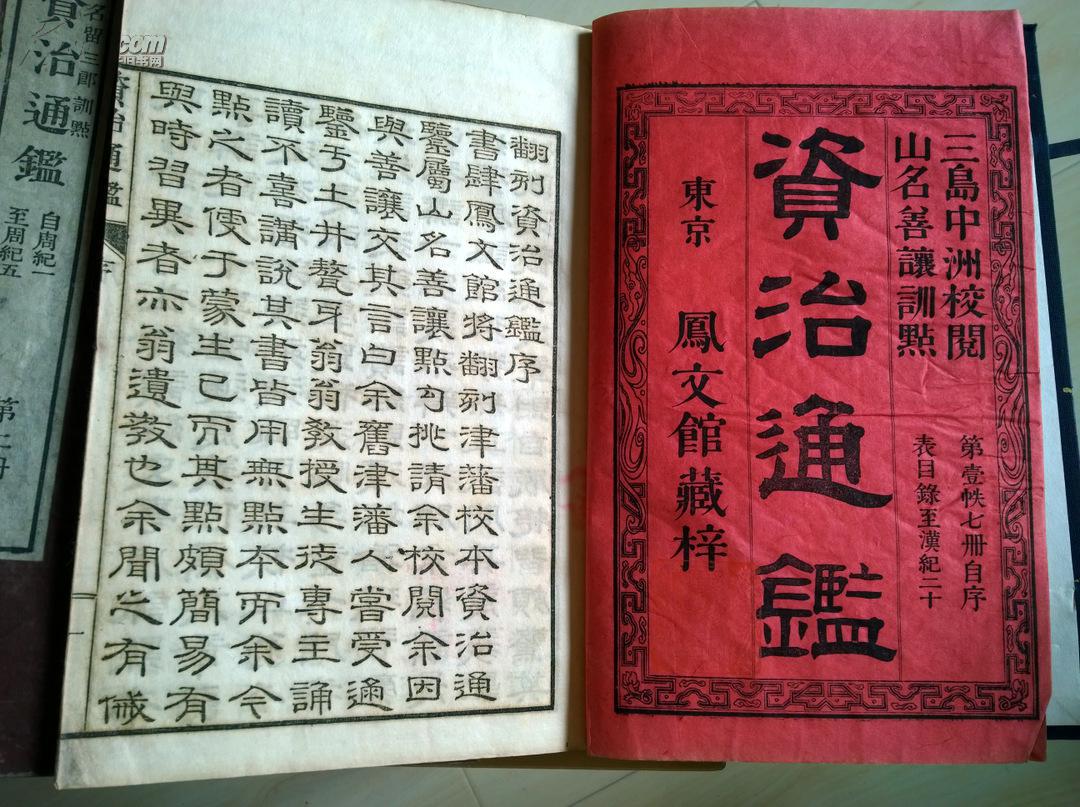 三島中洲校閱
山名善讓訓點
第壹帙七册自序
表目錄至漢紀二十
資治通鑑
東京 鳳文館藏梓
翻刻資治通鑑序
書肆鳳文館將翻刻津藩校本資治通
鑒屬山名善讓點勾挑請余校閱余因
與善讓交其言曰余舊津藩人嘗受通
鑒于土井聱牙翁翁敎授生徒專主誦
讀不喜講說其書皆用無點本而余今
點之者便于蒙生已而其點頗簡易有
與時習異者亦翁遺敎也余聞之有慽
資治通鑑
名留三郎訓點
資治通鑑
自周紀一
至周紀五